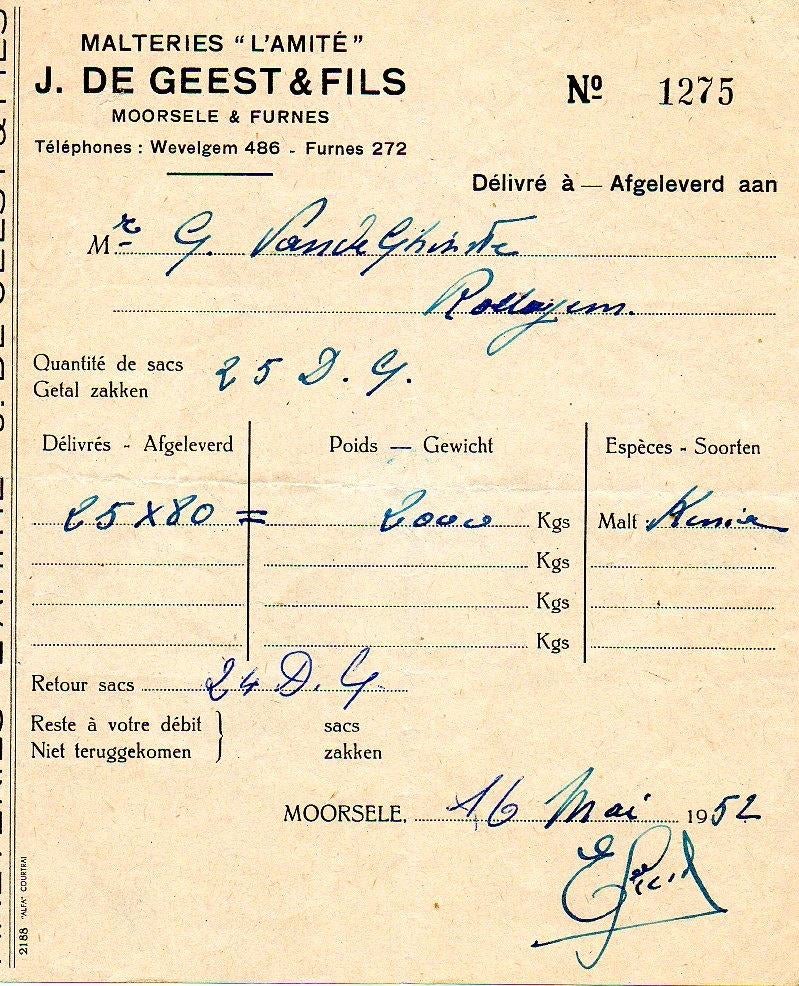 MALTERIES "L'AMITÉ"
J. DE GEEST & FILS
MOORSELE & FURNES
Téléphones : Wevelgem 486 - Furnes 272
Nº 1275
Délivré à — Afgeleverd aan
Mr G. VandeGhinste
Quantité de sacs
Getal zakken
25 D. G.
Délivrés - Afgeleverd Poids — Gewicht Espèces - Soorten
25 x 80 = 2000 Kgs Malt : Kenia
Kgs
Kgs
Kgs
Retour sacs 24 D. G
Reste à votre débit } sacs
Niet teruggekomen zakken
MOORSELE, 16 Mai 1952
2188 "ALFA" COURTRAI